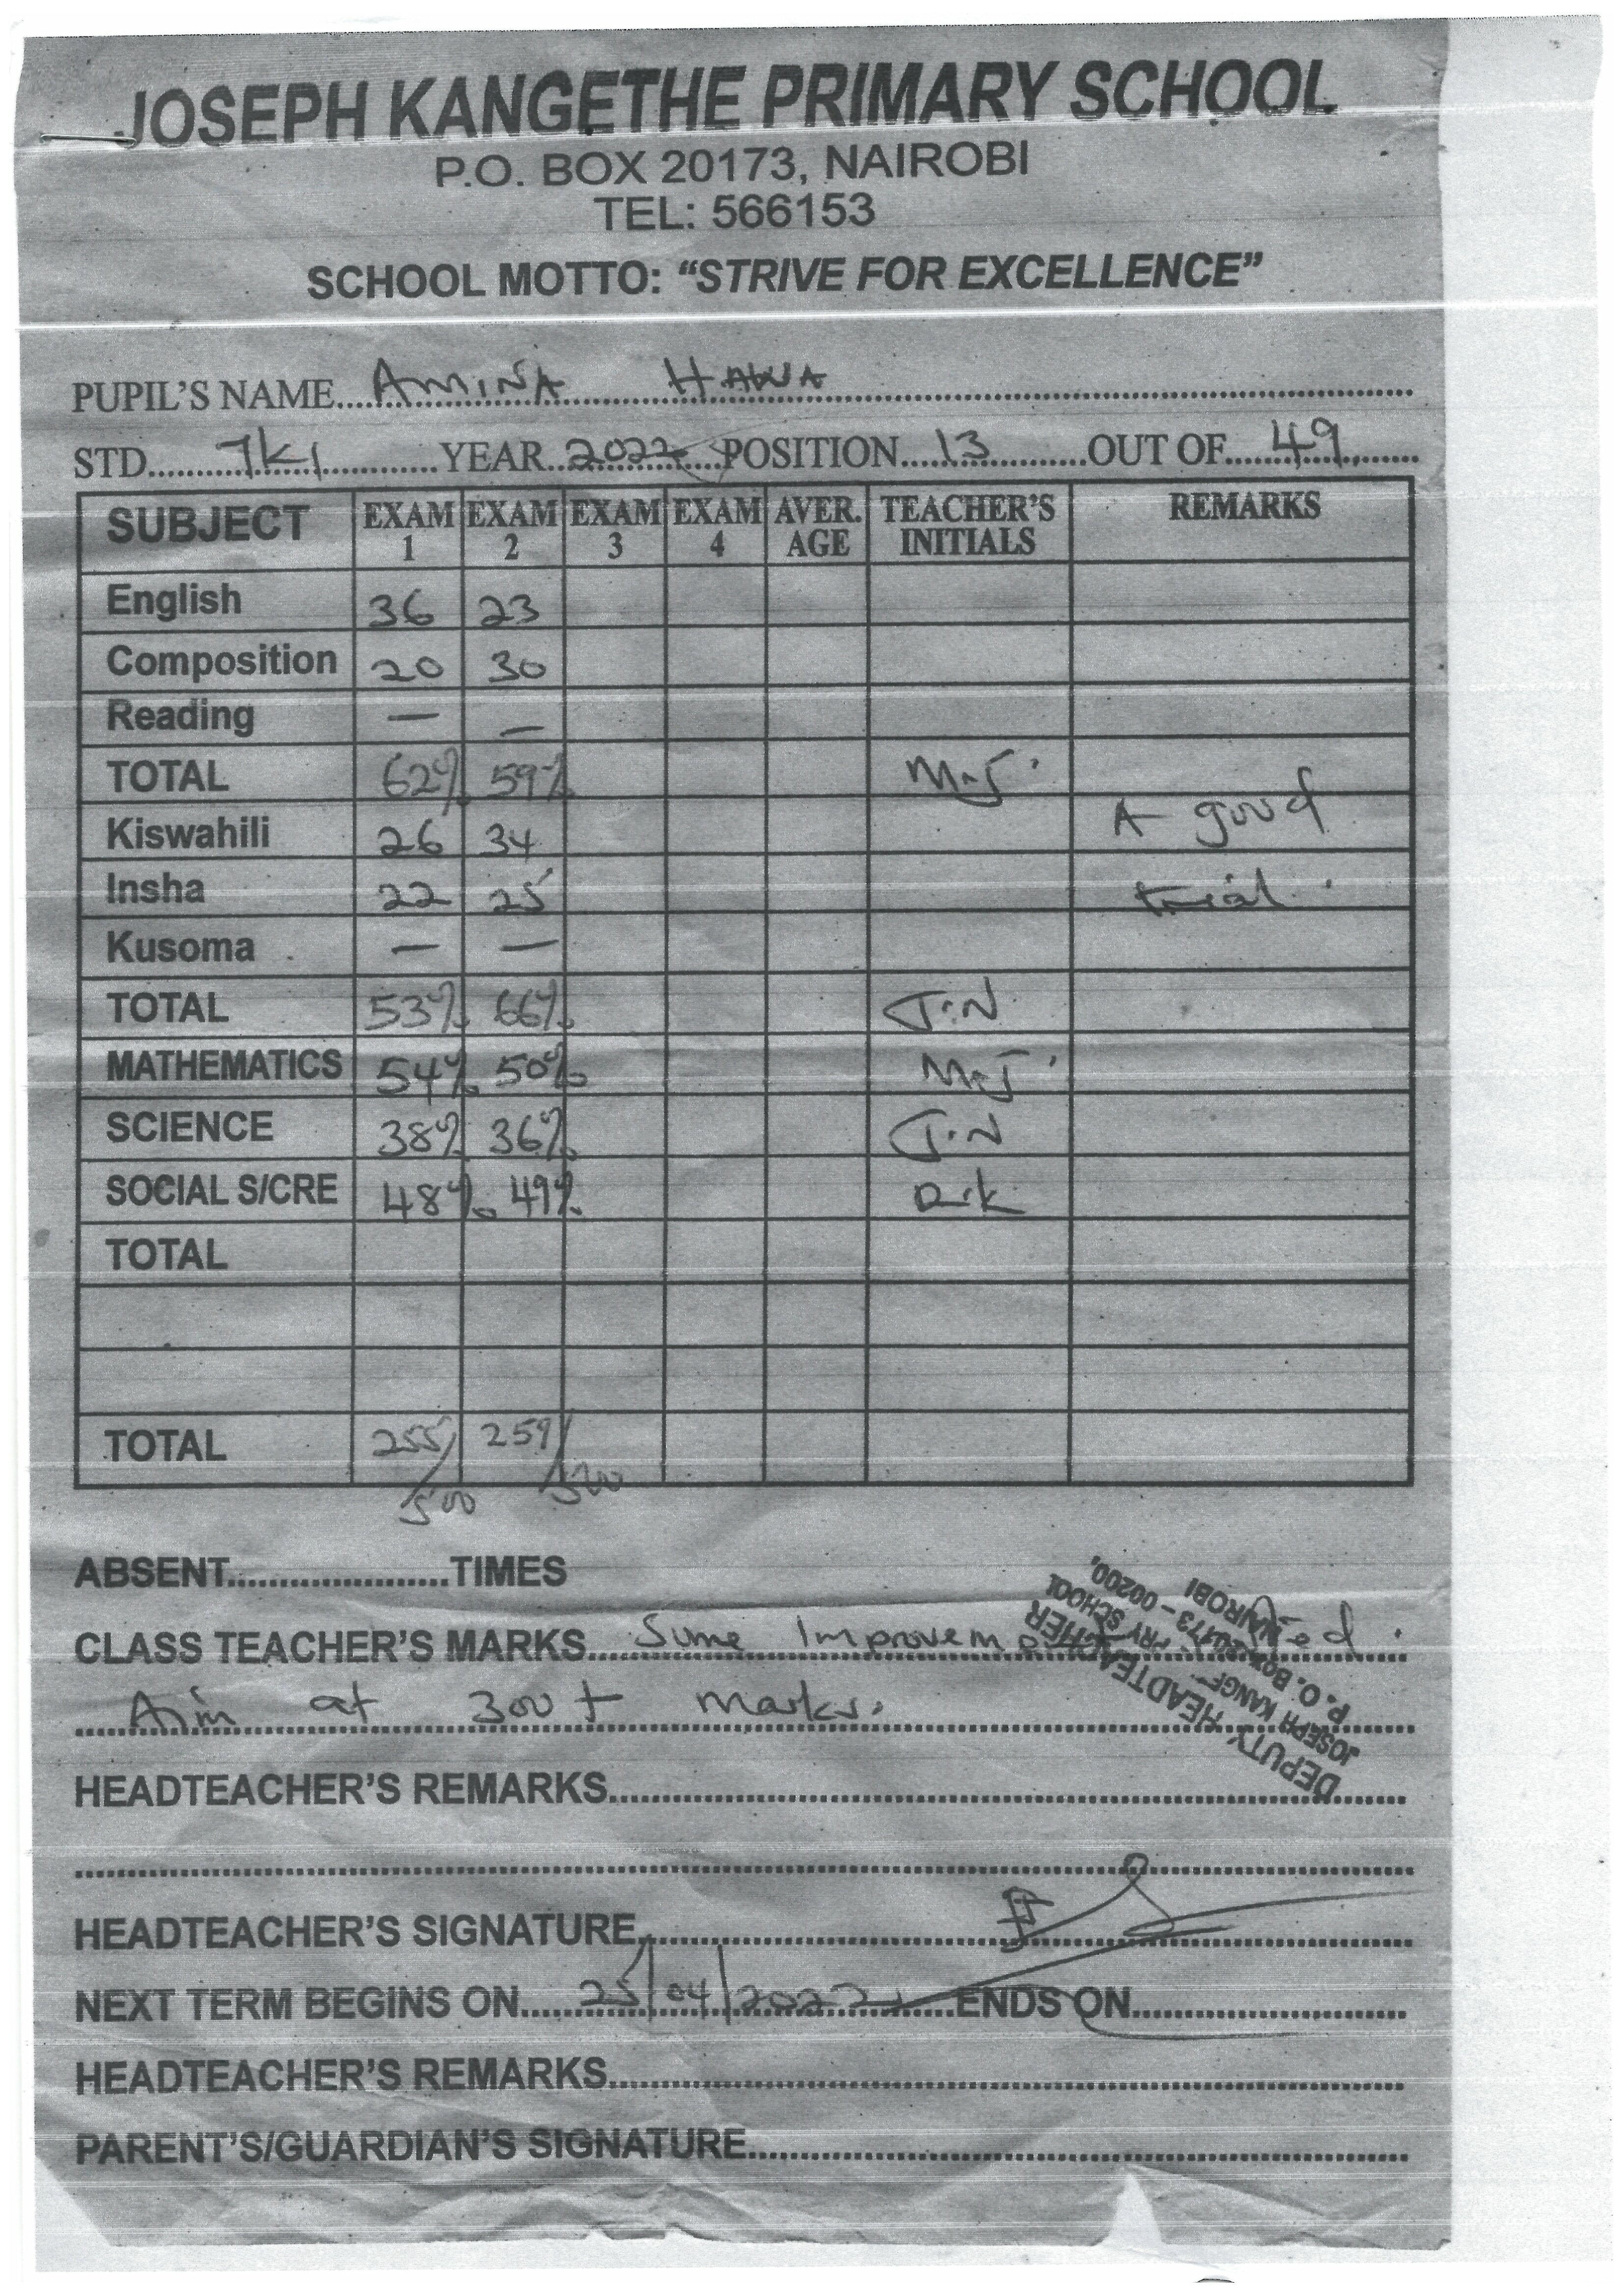 JOSEPH KANGETHE PRIMARY SCHOOL
P.O. BOX 20173, NAIROBI
TEL: 566153
SCHOOL MOTTO: “STRIVE FOR EXCELLENCE”
PUPIL'S NAME AMINA HAWA
STD 7K1 YEAR 2022 POSITION 13 OUT OF 49
SUBJECT EXAM 1 EXAM 2 EXAM 3 EXAM 4 AVER. AGE TEACHER'S INITIALS REMARKS
English 36 23
Composition 20 30
Reading — —
TOTAL 62% 59% M.J.
Kiswahili 26 34 A good
Insha 22 25 trial.
Kusoma — —
TOTAL 53% 66% J.N
MATHEMATICS 54% 50% M.J.
SCIENCE 38% 36% J.N
SOCIAL S/CRE 48% 49% D.K
TOTAL
TOTAL 255/500 259/500
ABSENT TIMES
CLASS TEACHER'S MARKS Some Improvem
Aim at 300+ marks.
DEPUTY HEADTEACHER
JOSEPH KANGE PRY SCHOOL
P.O. BOX 20173 - 00200,
NAIROBI
HEADTEACHER'S REMARKS
HEADTEACHER'S SIGNATURE
NEXT TERM BEGINS ON 25/04/2022 ENDS ON
HEADTEACHER'S REMARKS
PARENT'S/GUARDIAN'S SIGNATURE